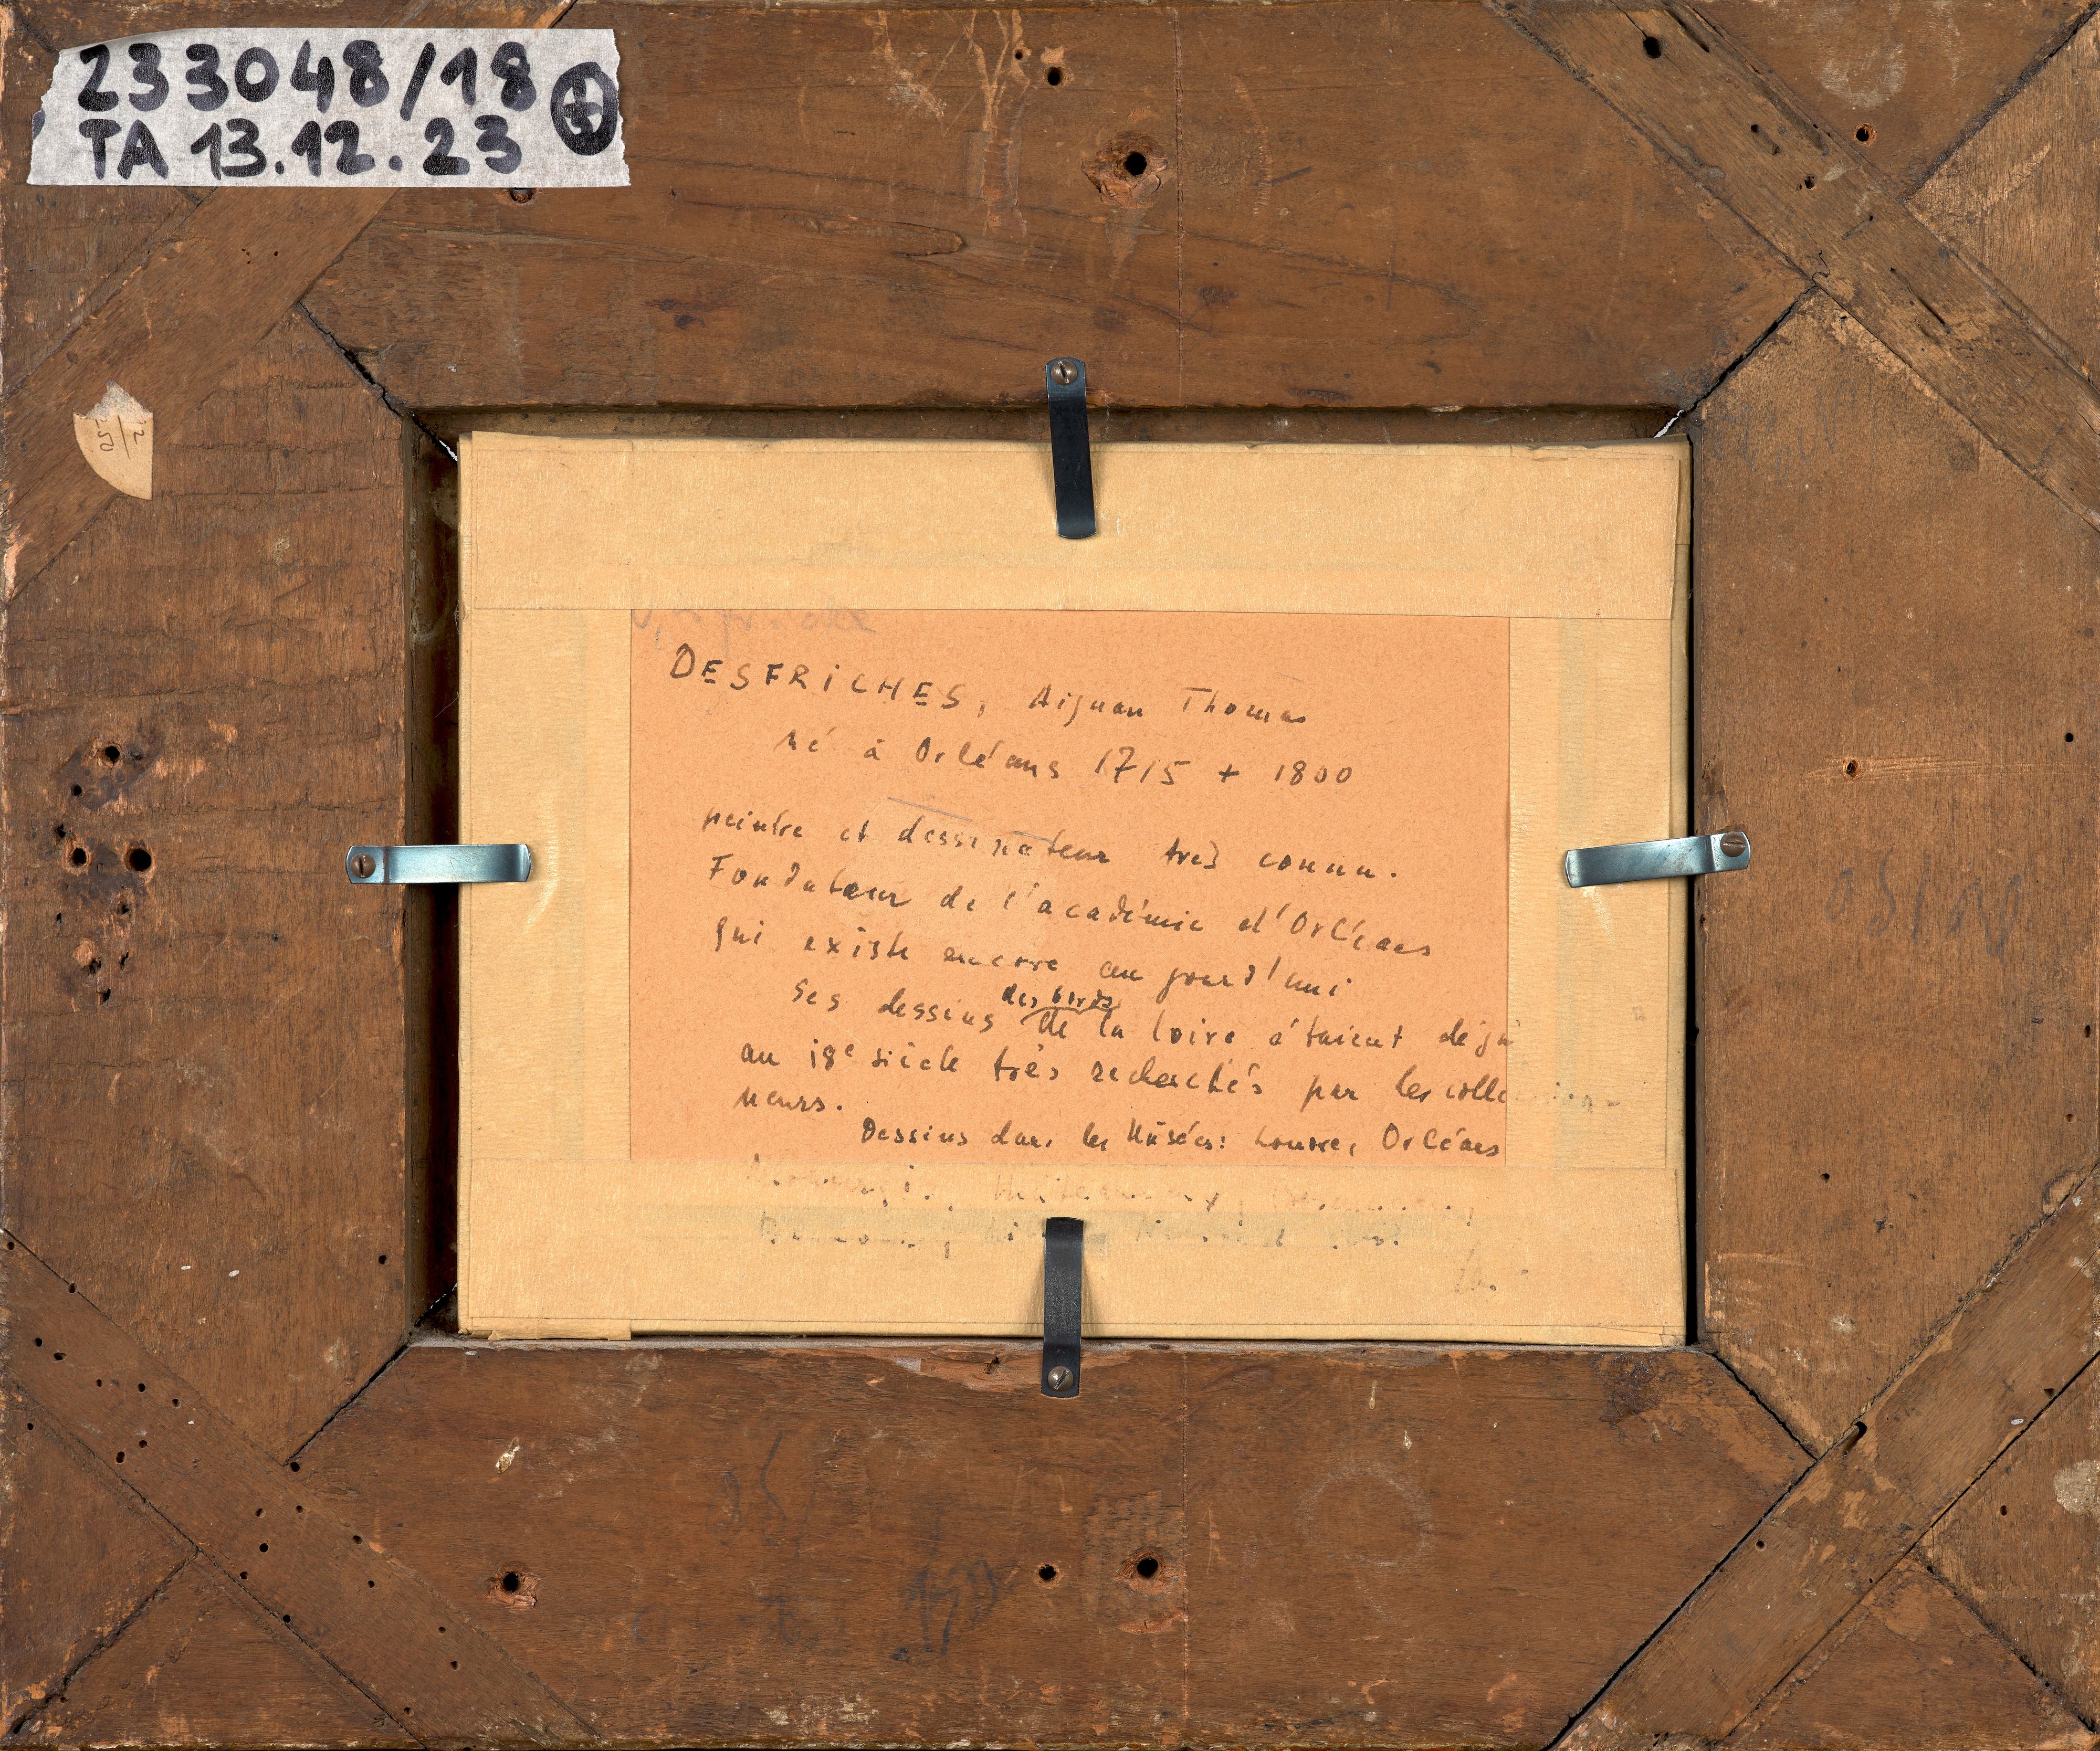 233048/18
TA 13.12.23
DESFRICHES, Aignan Thomas
né à Orléans 1715 + 1800
peintre et dessinateur très connu.
Fondateur de l'académie d'Orléans
qui existe encore au jourd'hui
des bords
Ses dessins de la Loire étaient déjà
au 18e siècle très recherchés par les collection-
neurs.
Dessins dans les Musées: Louvre, Orléans